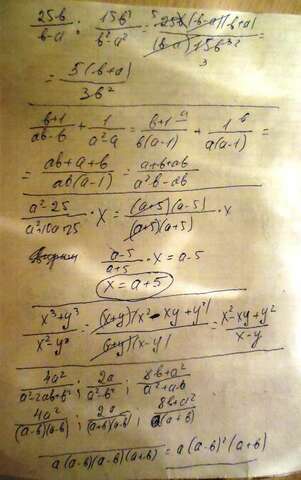 25b/(b-a) : 15b³/(b²-a²) = 25b(b-a)(b+a)/((b-a)15b³) =
= 5(b+a)/3b²
(b+1)/(ab-b) + 1/(a²-a) = (b+1)/(b(a-1)) + 1/(a(a-1)) =
= (ab+a+b)/(ab(a-1)) = (a+b+ab)/(a²b-ab)
(a²-25)/(a²+10a+25) · x = (a+5)(a-5)/((a+5)(a+5)) · x
(a-5)/(a+5) · x = a-5
x = a+5
(x³+y³)/(x²-y²) = (x+y)(x²-xy+y²)/((x+y)(x-y)) = (x²-xy+y²)/(x-y)
4a²/(a²-2ab+b²) ; 2a/(a²-b²) ; (8b+a²)/(a²+ab)
4a²/((a-b)(a-b)) ; 2a/((a-b)(a+b)) ; (8b+a²)/(a(a+b))
a(a-b)(a-b)(a+b) = a(a-b)²(a+b)